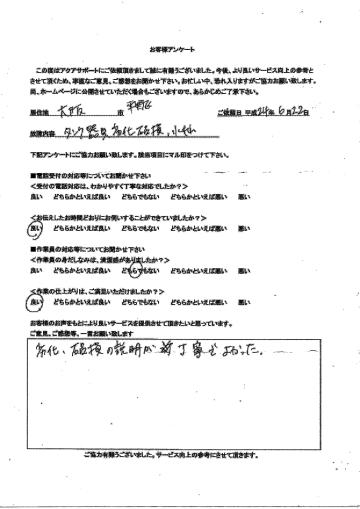 お客様アンケート
この度はアクアサポートにご依頼頂きまして誠に有難うございました。今後、より良いサービス向上の参考と
させて頂くため、率直なご意見、ご感想をお聞かせ下さい。お忙しい中、恐れ入りますがご協力お願い致します。
尚、ホームページに公開させていただく場合もございますので、あらかじめご了承下さい。
居住地 大阪 市 平野区 ご依頼日 平成24年6月22日
故障内容 タンク器具劣化破損、水もれ
下記アンケートにご協力お願い致します。該当項目にマル印をつけて下さい。
■電話受付の対応等についてお聞かせ下さい
<受付の電話対応は、わかりやすく丁寧な対応でしたか?>
良い どちらかといえば良い どちらでもない どちらかといえば悪い 悪い
<お伝えしたお時間どおりにお伺いすることができていましたか?>
良い どちらかといえば良い どちらでもない どちらかといえば悪い 悪い
■作業員の対応等についてお聞かせ下さい
<作業員の身だしなみは、清潔感がありましたか?>
良い どちらかといえば良い どちらでもない どちらかといえば悪い 悪い
<作業の仕上がりは、ご満足いただけましたか?>
良い どちらかといえば良い どちらでもない どちらかといえば悪い 悪い
お客様のお声をもとにより良いサービスを提供させて頂きたいと思っています。
ご意見、ご感想等、一言お願い致します
劣化、破損の説明が 丁寧でよかった。
ご協力有難うございました。サービス向上の参考にさせて頂きます。